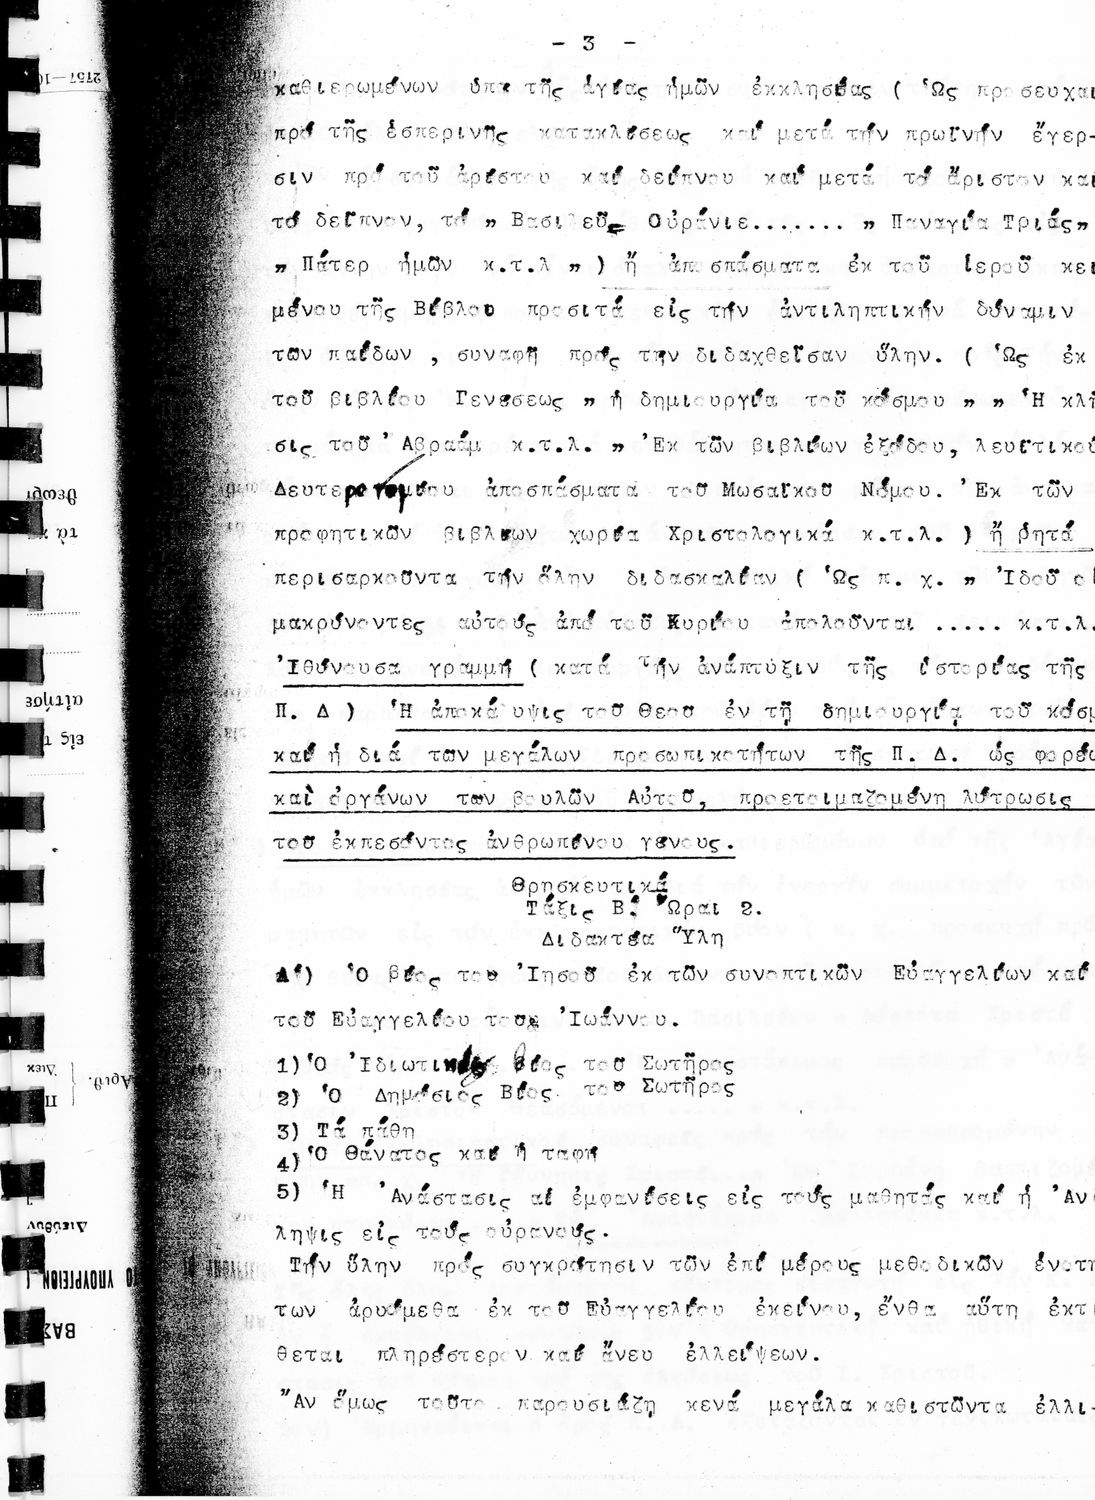 - 3 -
καθιερωμένων ὑπὸ τῆς ἁγίας ἡμῶν ἐκκλησίας ( Ὡς προσευχαί
πρό τῆς ἑσπερινῆς κατακλίσεως καί μετά τήν πρωϊνήν ἔγερ-
σιν πρό τοῦ ἀρίστου καί δείπνου καί μετά τό ἄριστον καί
τό δεῖπνον, τό " Βασιλεῦ Οὐράνιε....... " Παναγία Τριάς"
" Πάτερ ἡμῶν κ.τ.λ " ) ἤ ἀποσπάσματα ἐκ τοῦ ἱεροῦ κει
μένου τῆς Βίβλου προσιτά εἰς τήν ἀντιληπτικήν δύναμιν
τῶν παίδων , συναφῆ πρός τήν διδαχθεῖσαν ὕλην. ( Ὡς ἐκ
τοῦ βιβλίου Γενέσεως " ἡ δημιουργία τοῦ κόσμου " " Ἡ κλῆ
σις τοῦ Ἀβραάμ κ.τ.λ. " Ἐκ τῶν βιβλίων ἐξόδου, λευϊτικοῦ
Δευτερονομίου ἀποσπάσματα τοῦ Μωσαϊκοῦ Νόμου. Ἐκ τῶν
προφητικῶν βιβλίων χωρία Χριστολογικά κ.τ.λ. ) ἤ ῥητά
περισαρκοῦντα τήν ὅλην διδασκαλίαν ( Ὡς π. χ. " Ἰδού οἱ
μακρύνοντες αὐτούς ἀπό τοῦ Κυρίου ἀπολοῦνται ..... κ.τ.λ.
Ἰθύνουσα γραμμή ( κατά τήν ἀνάπτυξιν τῆς ἱστορίας τῆς
Π. Δ ) Ἡ ἀποκά υψις τοῦ Θεοῦ ἐν τῇ δημιουργίᾳ τοῦ κόσμ
καί ἡ διά τῶν μεγάλων προσωπικοτήτων τῆς Π. Δ. ὡς φορέω
καὶ ὀργάνων τῶν βουλῶν Αὐτοῦ, προετοιμαζομένη λύτρωσις
τοῦ ἐκπεσόντος ἀνθρωπίνου γένους.
Θρησκευτικά
Τάξις Β΄ Ὧραι 2.
Διδακτέα Ὕλη
Α΄) Ὁ βίος τοῦ Ἰησοῦ ἐκ τῶν συνοπτικῶν Εὐαγγελίων καί
τοῦ Εὐαγγελίου τοῦ Ἰωάννου.
1) Ὁ Ἰδιωτικός βίος τοῦ Σωτῆρος
2) Ὁ Δημόσιος Βίος τοῦ Σωτῆρος
3) Τά πάθη
4) Ὁ Θάνατος καί ἡ ταφή
5) Ἡ Ἀνάστασις αἱ ἐμφανίσεις εἰς τούς μαθητάς καί ἡ Ἀν
ληψις εἰς τούς οὐρανούς.
Τήν ὕλην πρός συγκρότησιν τῶν ἐπί μέρους μεθοδικῶν ἑνοτή
των ἀρυόμεθα ἐκ τοῦ Εὐαγγελίου ἐκείνου, ἔνθα αὕτη ἐκτί
θεται πληρέστερον καί ἄνευ ἐλλείψεων.
Ἄν ὅμως τοῦτο παρουσιάζῃ κενά μεγάλα καθιστῶντα ἐλλι-